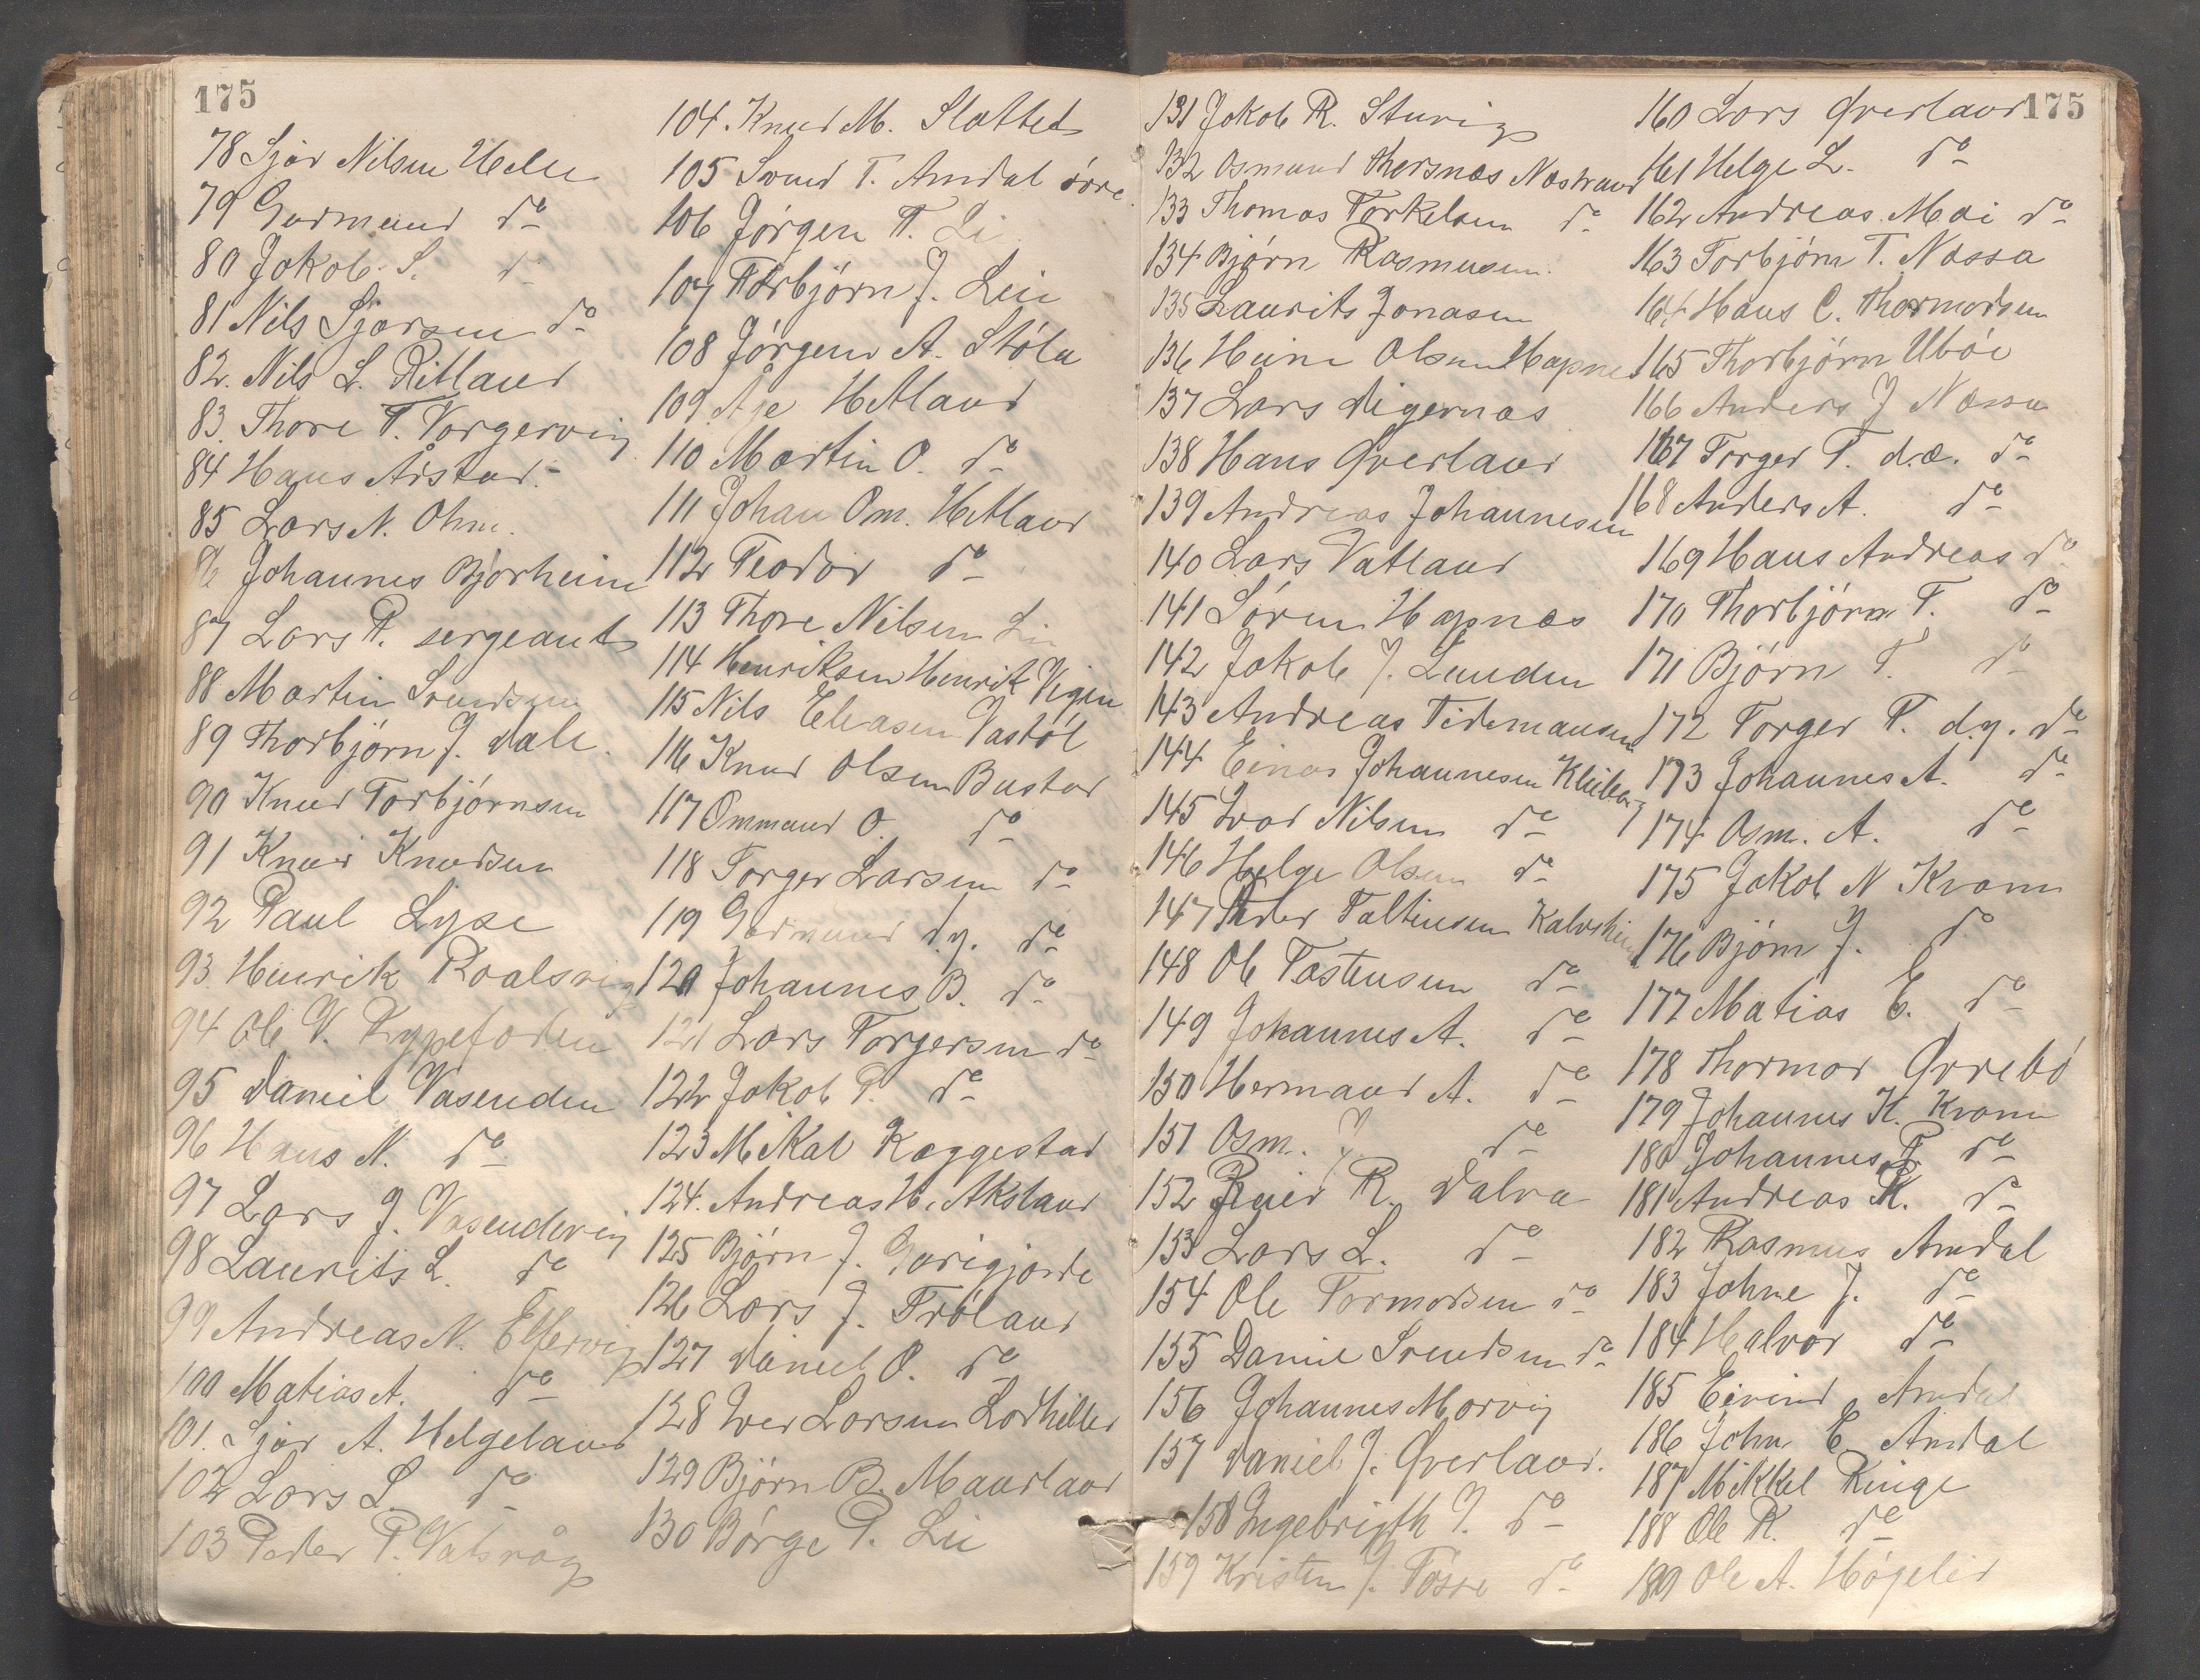 175
78 Sjør Nilsen Helle
79 Gudmund do
80 Jakob S. do
81 Nils Sjørsen do
82. Nils L. Ritland
83. Thore T. Vorgervig
84 Hans Årstad.
85 Lars N. Ohm.
86 Johannes Bjørheim
87 Lars P. sergeant
88 Martin Svendsen
89 Thorbjørn J. Dale.
90 Knud Torbjørnsen
91 Knud Knudsen
92 Paul Lyse
93. Henrik Roalsvig
94 Ole V. Rypefoden
95 Daniel Vasenden
96 Hans N. do
97 Lars J. Vasendvig
98 Laurits L. do
99 Andreas N. Eltervig
100 Matias A. do
101. Sjør A. Helgeland
102 Lars L. do
103 Peder P. Valsvåg
104. Knud M. Slatted
105 Svend T. Amdal øvre
106 Jørgen T. Li
107 Torbjørn J. Lii
108 Jørgen A. Støle
109 Åje Hetland
110 Martin O. do
111 Johan Om. Hetland
112 Teodor do
113 Thore Nilsen Li
114 Henriksen Henrik Vigen
115 Nils Eliasen Vastøl
116 Knud Olsen Bustad
117 Ommund O. do
118 Torger Larsen do
119 Gudmund d.y. do
120 Johannes B. do
121 Lars Torgersen do
122 Jakob T. do
123 Mikal Kaggestad
124. Andreas H. Aksland
125 Bjørn J. Garigjorde
126 Lars J. Frøland
127 Daniel O. do
128 Iver Larsen Lodhiller
129 Bjørn B. Maurland
130 Børge P. Lii
131 Jakob R. Stuvig
132 Osmund Thorsnæs Næstrand
133 Thomas Torkelsen do
134 Bjørn Rasmusen.
135 Laurits Jonasen
136 Heine Olsen Hapnes
137 Lars Digernæs
138 Hans Qverland
139 Andreas Johannesen
140 Lars Vatland
141 Søren Hapnæs
142 Jakob J. Lunden
143 Andreas Tidemansen
144 Einar Johannesen Kleiberg
145 Ivar Nilsen do
146 Helge Olsen do
147 Peder Faltinsen Kalvshei
148 Ole Tostensen do
149 Johannes A. do
150 Hermand A. do
151 Osm. J. do
152 Reier R. Dalva
153 Lars L. do
154 Ole Tormodsen do
155 Daniel Svendsen do
156 Johannes Marvig
157 Daniel J. Qverland.
158 Ingebrigth J. do
159 Kristen J. Tøsse do
160 Lars Qverland
175
161 Helge L. do
162 Andreas Moi do
163 Torbjørn T. Nøssa
164 Hans C. Thormodsen
165 Thorbjørn Ubøe
166 Anders J Nøssa
167 Torger T. d.æ. do
168 Anders A. do
169 Hans Andreas do
170 Thorbjørn T. do
171 Bjørn T. do
172 Torger T. d.y. do
173 Johannes A. do
174 Osm. A. do
175 Jakob N Kvam
176 Bjørn J. do
177 Matias E. do
178 Thormod Qvrebø
179 Johannes K. Kvam
180 Johannes P do
181 Andreas K. do
182 Rasmus Amdal
183 Johne J. do
184 Halvor do
185 Eivind Amdal
186 John E. Amdal
187 Mikkel Ringe
188 Ole R. do
189 Ole A. Høgelid